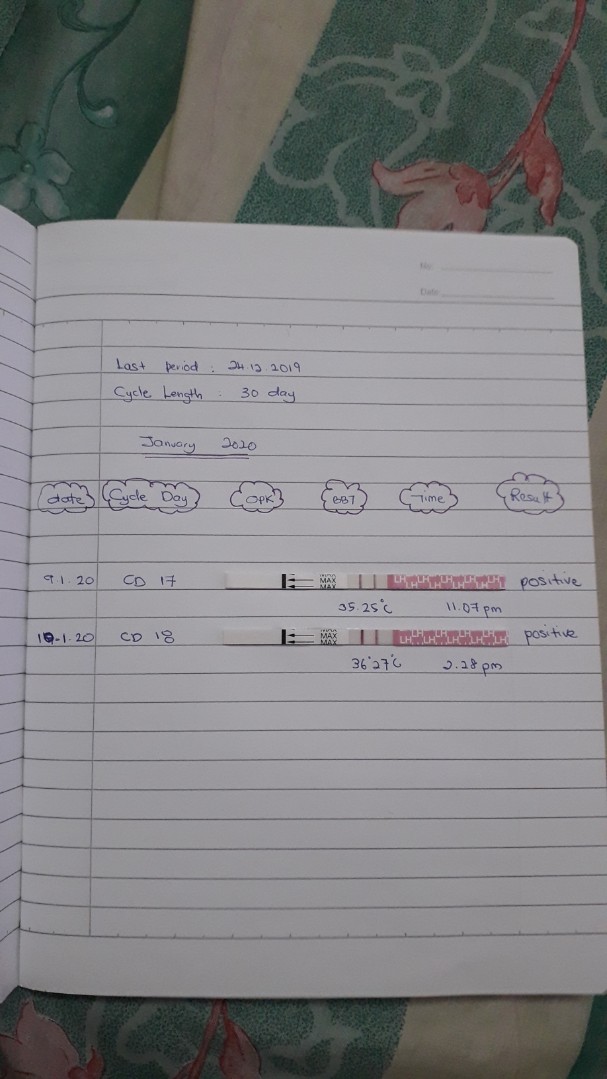 No:
Date
Last period : 24.12 2019
Cycle Length : 30 day
January 2020
date Cycle Day OPK BBT Time Result
9.1.20 CD 17 MAX MAX LH LH LH LH LH LH LH LH positive
35.25°c 11.07 pm
10-1.20 CD 18 MAX MAX LH LH LH LH LH LH LH LH positive
36°27°c 2.28 pm